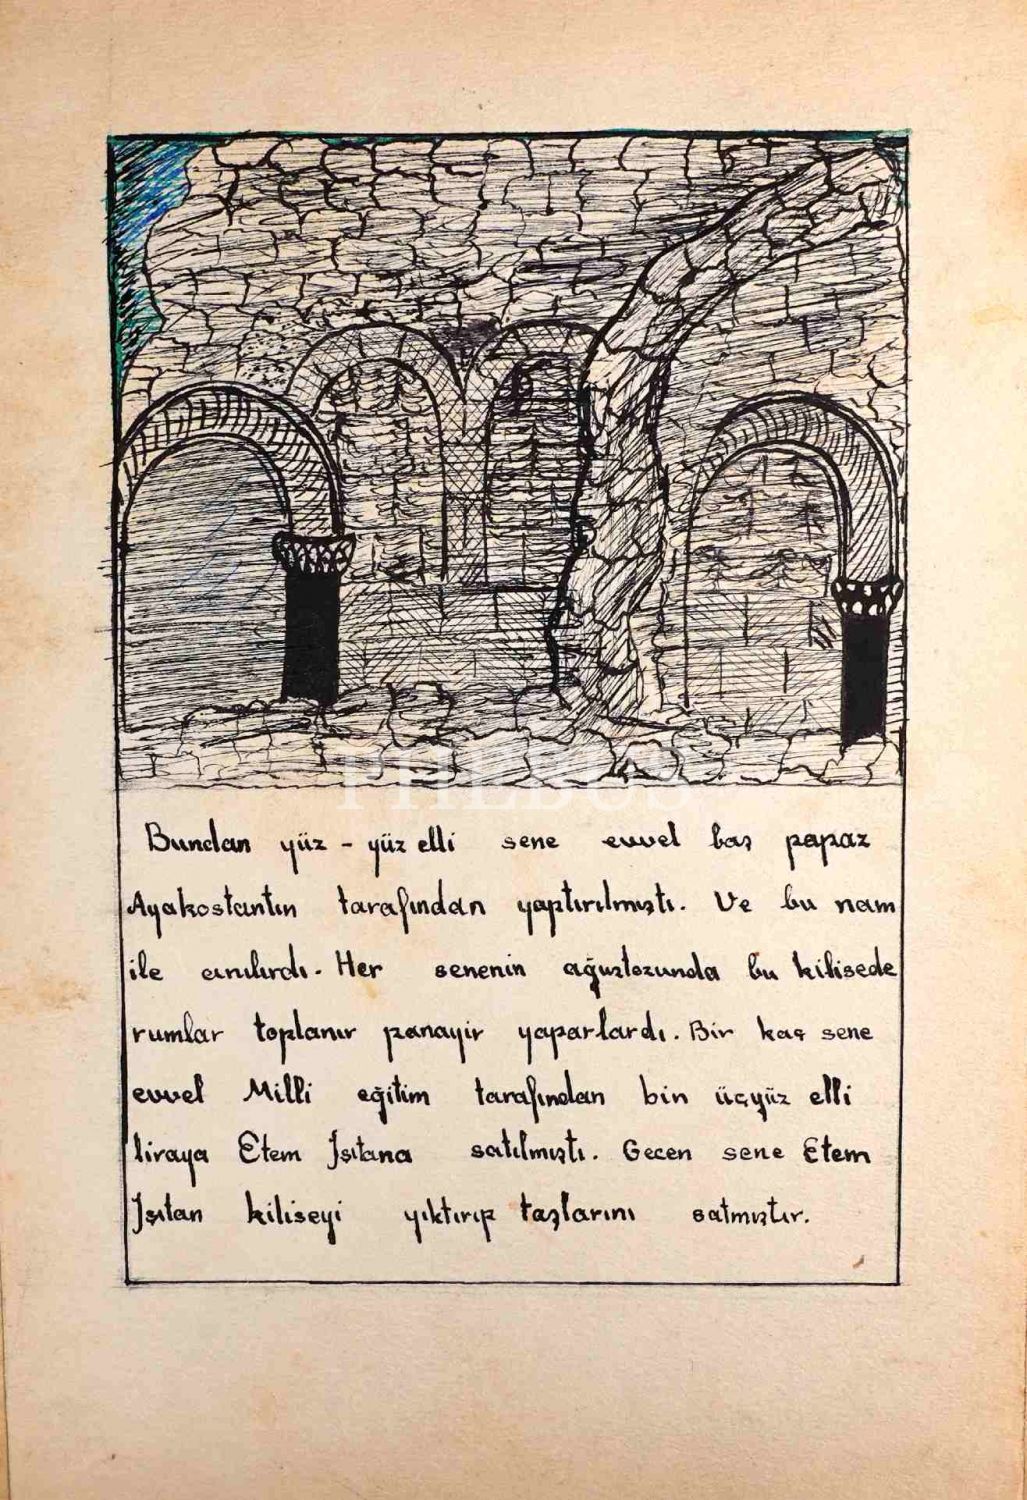 PHEBUS
Bundan yüz - yüz elli sene evvel baş papaz
Ayakostantin tarafından yaptırılmıştı. Ve bu nam
ile anılırdı. Her senenin ağustozunda bu kilisede
rumlar toplanır panayir yaparlardı. Bir kaç sene
evvel Milli eğitim tarafından bin üçyüz elli
liraya Etem Işıtana satılmıştı. Gecen sene Etem
Işıtan kiliseyi yıktırıp taşlarını satmıştır.